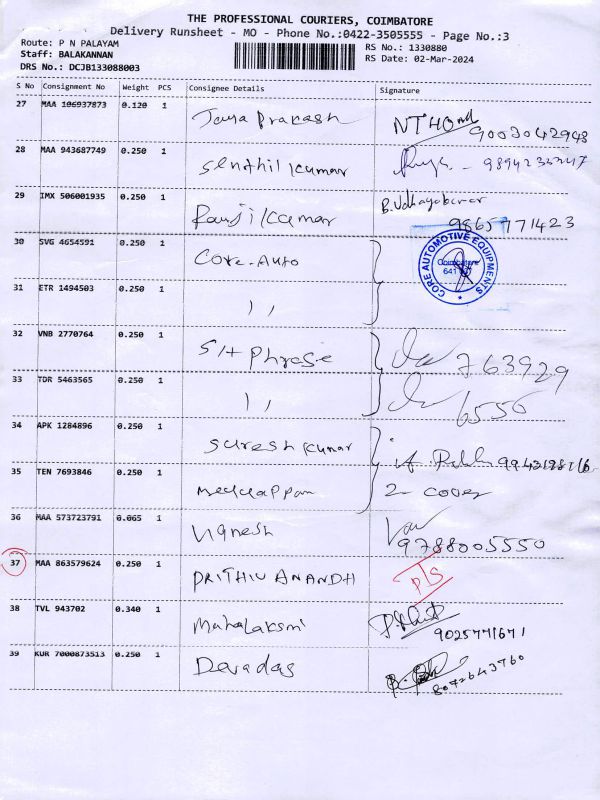 THE PROFESSIONAL COURIERS, COIMBATORE
Delivery Runsheet - MO - Phone No.:0422-3505555 - Page No.:3
Route: P N PALAYAM
Staff: BALAKANNAN
DRS No.: DCJB133088003
RS No.: 1330880
RS Date: 02-Mar-2024
S No Consignment No Weight PCS Consignee Details Signature
27 MAA 106937873 0.120 1 Jaya Prakash 9003042943
28 MAA 943687749 0.250 1 Senthil kumar
29 IMX 506001935 0.250 1 Ranjilkumar B. Udhayakumar
9865771423
30 SVG 4654591 0.250 1 Core-Auto
CORE AUTOMOTIVE EQUIPMENTS
Coimbatore
641
31 ETR 1494503 0.250 1 ,,
32 VNB 2770764 0.250 1 763929
33 TDR 5463565 0.250 1 ,, 6556
34 APK 1284896 0.250 1 Suresh kumar
35 TEN 7693846 0.250 1 Meyyappan 2 cover
36 MAA 573723791 0.065 1 Vignesh
9788005550
37 MAA 863579624 0.250 1 PRITHIV ANANDH P/S
38 TVL 943702 0.340 1 Mahalaksmi
9025771671
39 KUR 7000873513 0.250 1 Devadas
8072643760